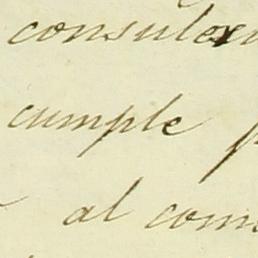 consules
cumple
al com